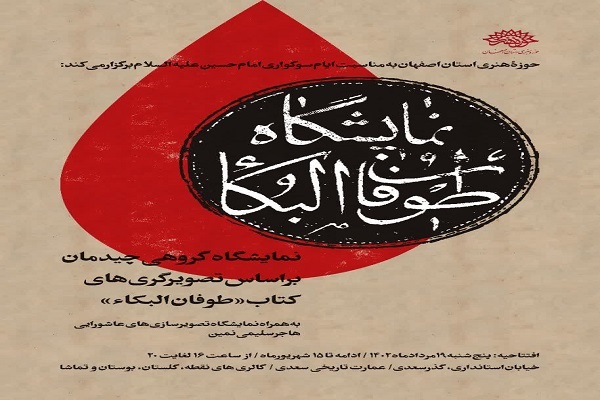 حوزهٔ هنری استان اصفهان به مناسبت ایام سوگواری امام حسین علیه السلام برگزار می‌کند:
نمایشگاه
طوفان البکاء
نمایشگاه گروهی چیدمان
براساس تصویرگری‌های
کتاب «طوفان البکاء»
به همراه نمایشگاه تصویرسازی‌های عاشورایی
هاجر سلیمی نمین
افتتاحیه: پنج‌شنبه ۱۹ مرداد ماه ۱۴۰۲ / ادامه تا ۱۵ شهریور ماه / از ساعت ۱۶ لغایت ۲۰
خیابان استانداری، گذر سعدی / عمارت تاریخی سعدی / گالری های نقطه، گلستان، بوستان و تماشا